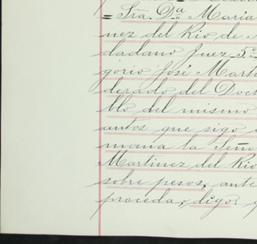 = Sra. Da. María
nez del Rio de
dadano Juez 5º
gorio José Marti
derado del Doct
llo del mismo
autos que sigo
maria la Seño
Martinez del Rio
sobre pesos, ante
proceda, digo: